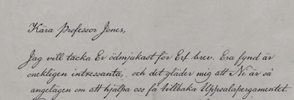 Kära Professor Jones,
Jag vill tacka Er ödmjukast för Ert brev. Era fynd är
onekligen intressanta, och det gläder mig att Ni är så
angelägen om att hjälpa oss få tillbaka Uppsalapergamentet